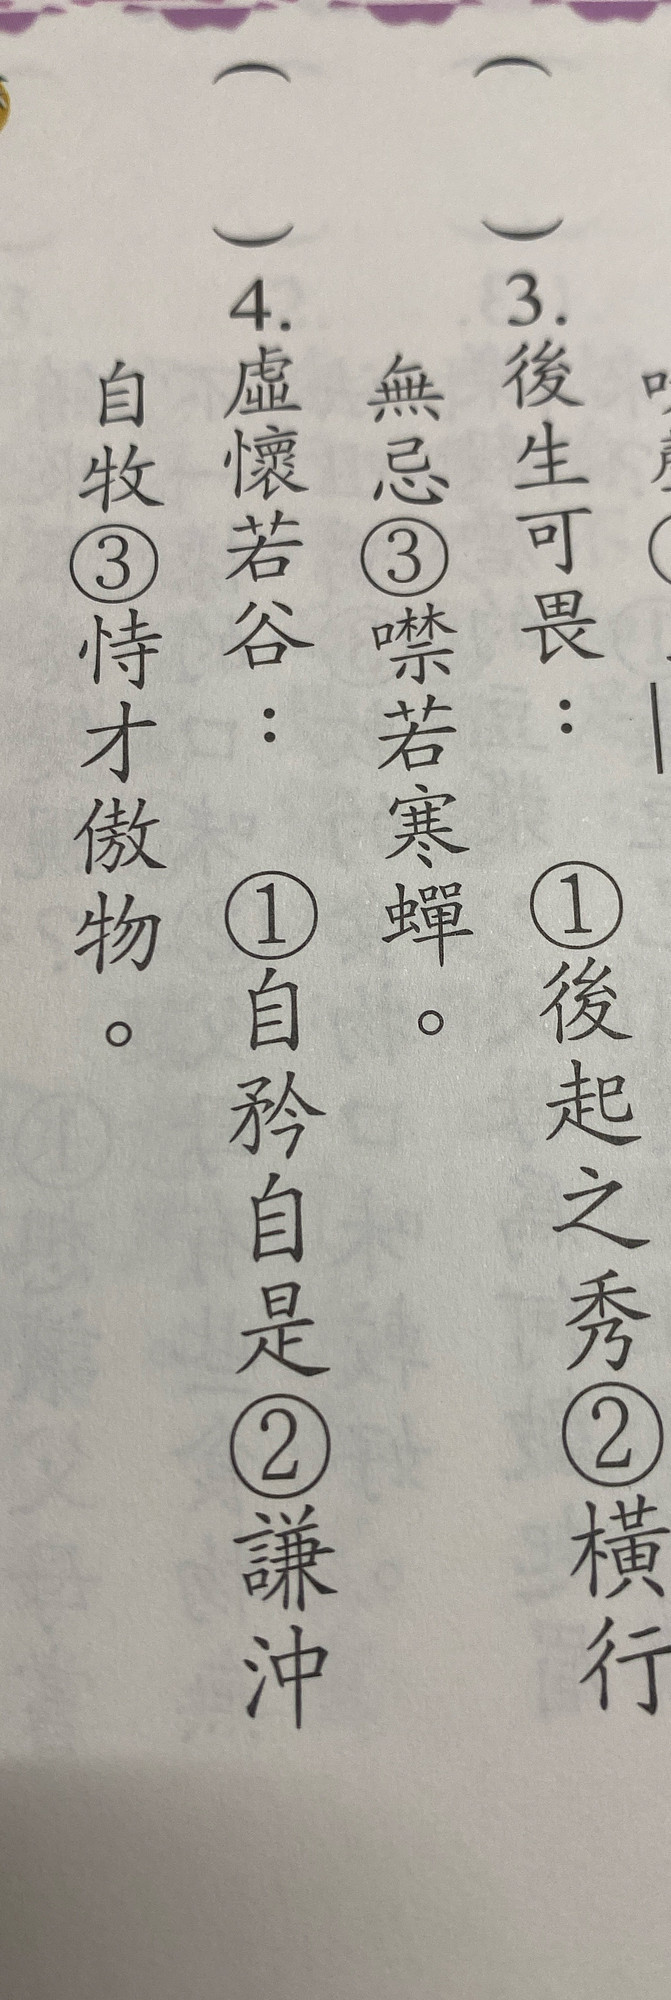 （　）3.後生可畏：①後起之秀②橫行
無忌③噤若寒蟬。
（　）4.虛懷若谷：①自矜自是②謙沖
自牧③恃才傲物。